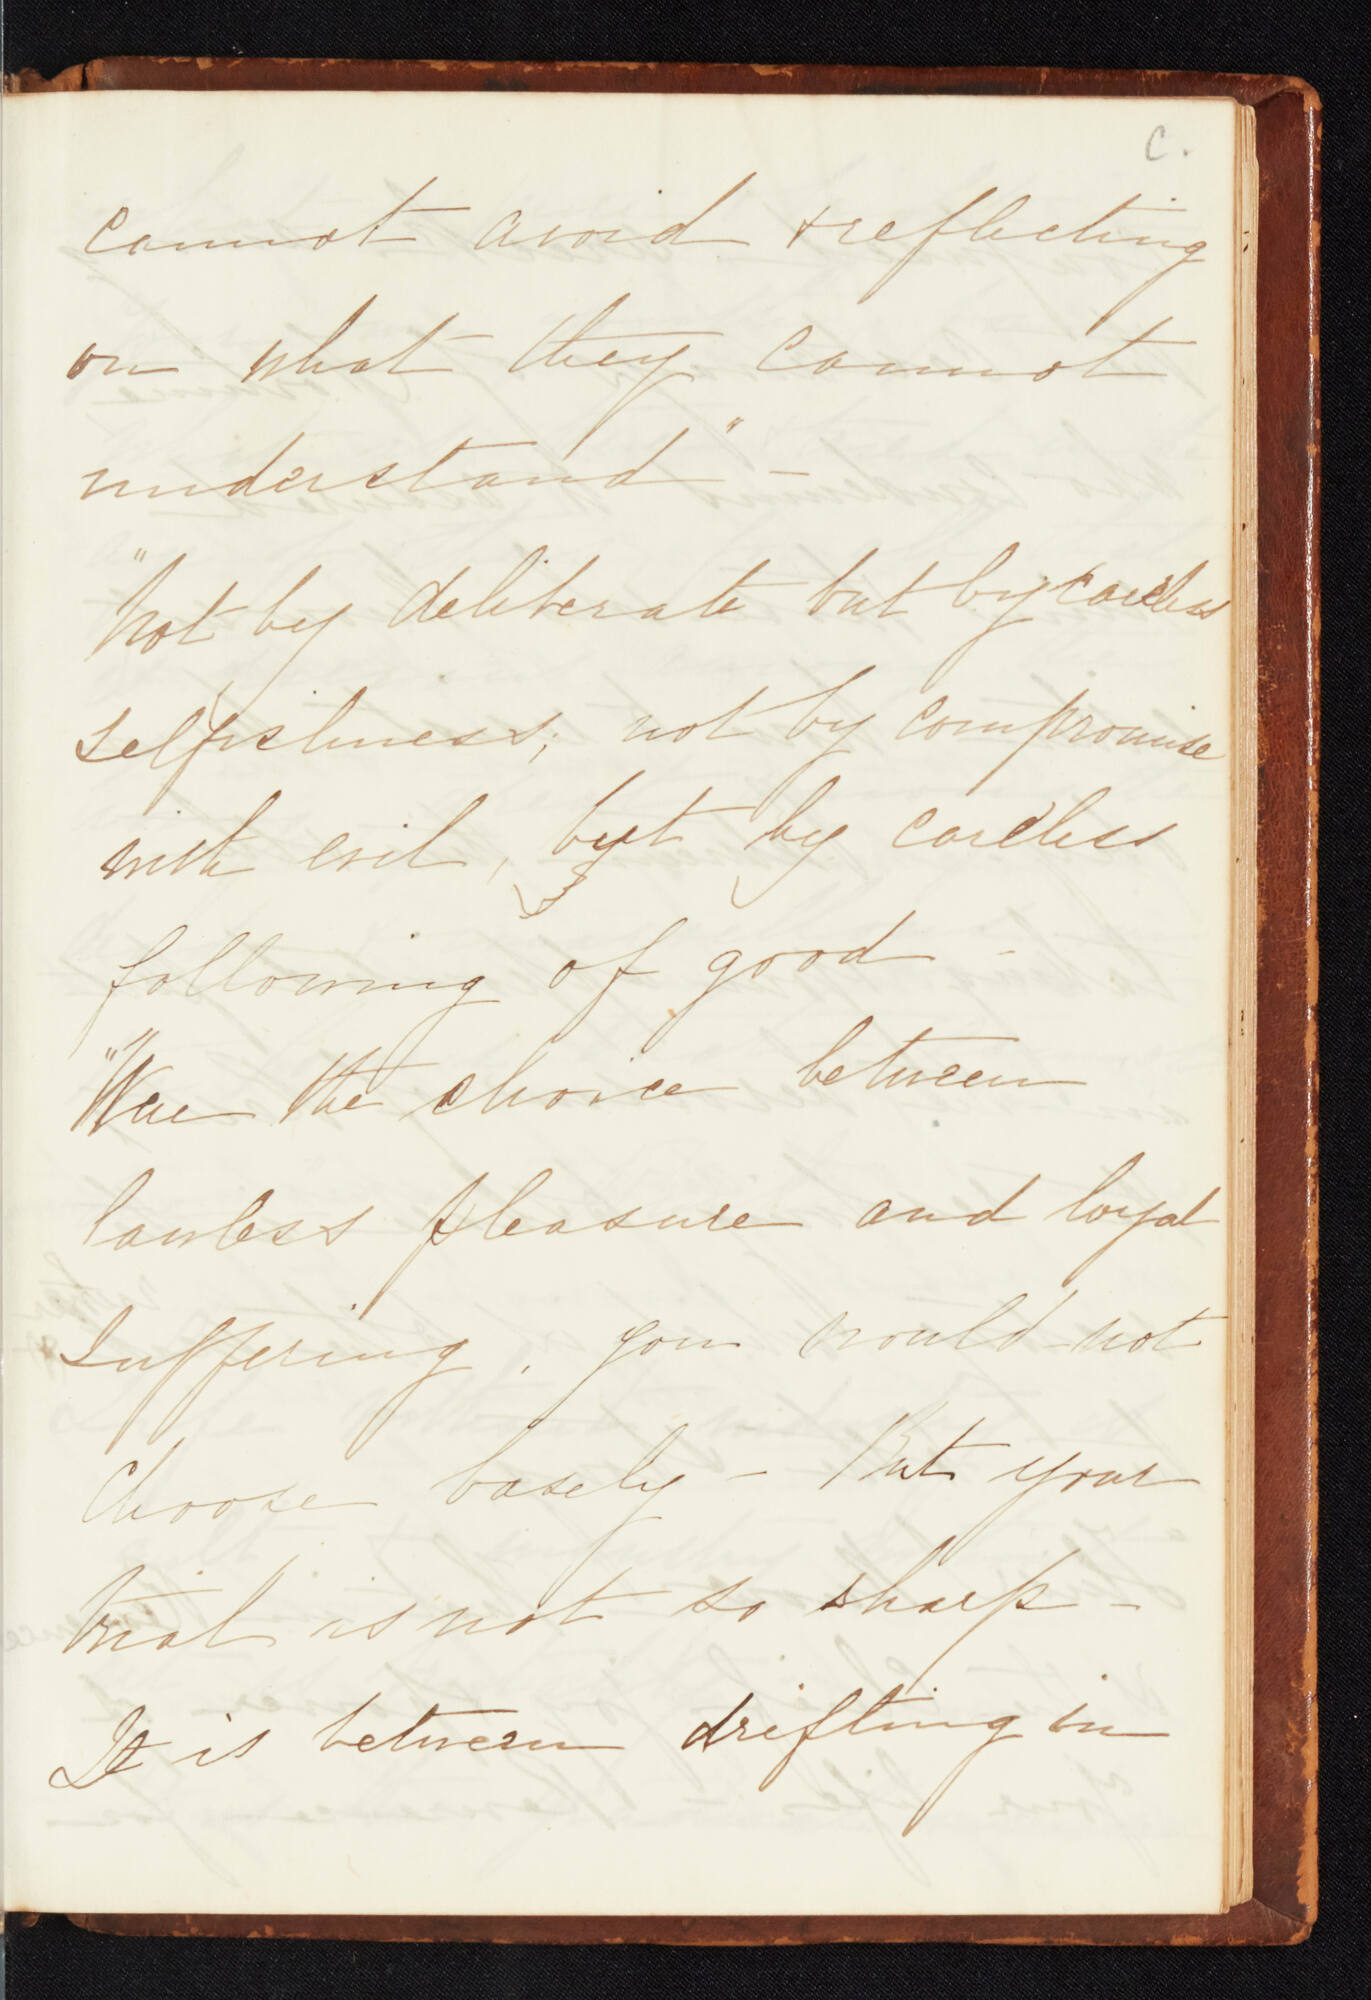 C.
cannot avoid & reflecting
on what they cannot
understand" —
"Not by deliberate but by careless
selfishness; not by compromise
with evil, but by careless
following of good —
"Were the choice between
lawless pleasure and loyal
suffering, you would not
choose basely — But your
trial is not so sharp —
It is between drifting in